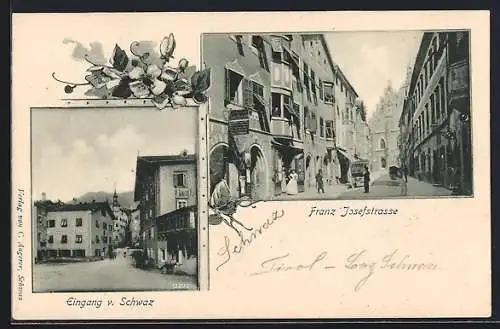 Franz Josefstrasse
Schwaz
Tirol - Bzg Schwaz
Eingang v. Schwaz
Verlag von C. Angerer, Schwaz